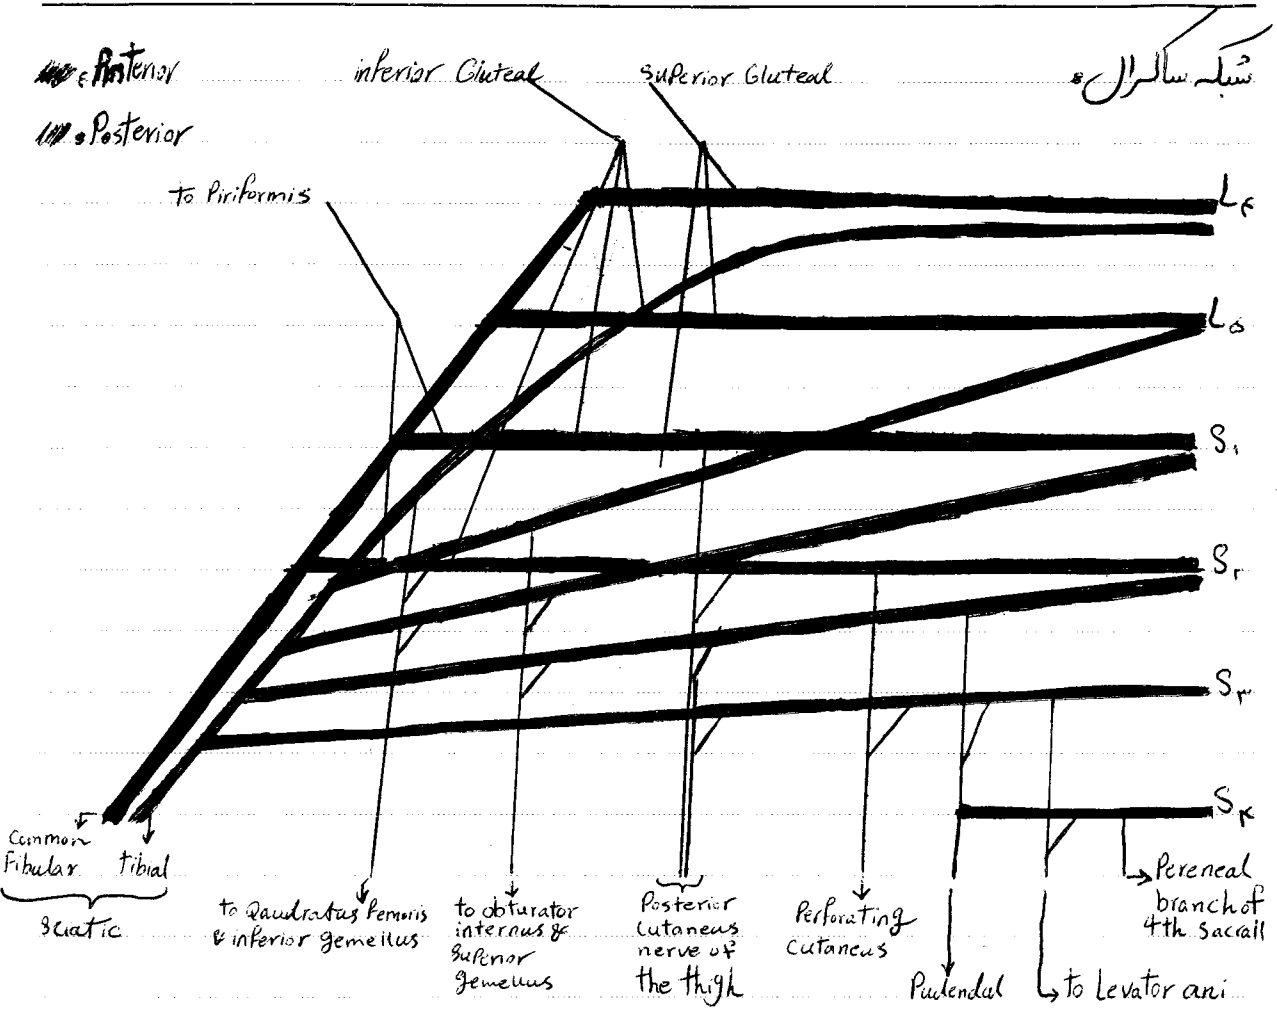 شبکه ساکرال:
: Anterior
: Posterior
inferior Gluteal
Superior Gluteal
to Piriformis
L۴
L۵
S۱
S۲
S۳
S۴
Common
Fibular
tibial
Sciatic
to Qaudratus Femoris
& inferior gemellus
to obturator
internus &
Superior
gemellus
Posterior
Cutaneus
nerve of
the thigh
Perforating
Cutaneus
Pudendal
to Levator ani
Pereneal
branch of
4th sacrall